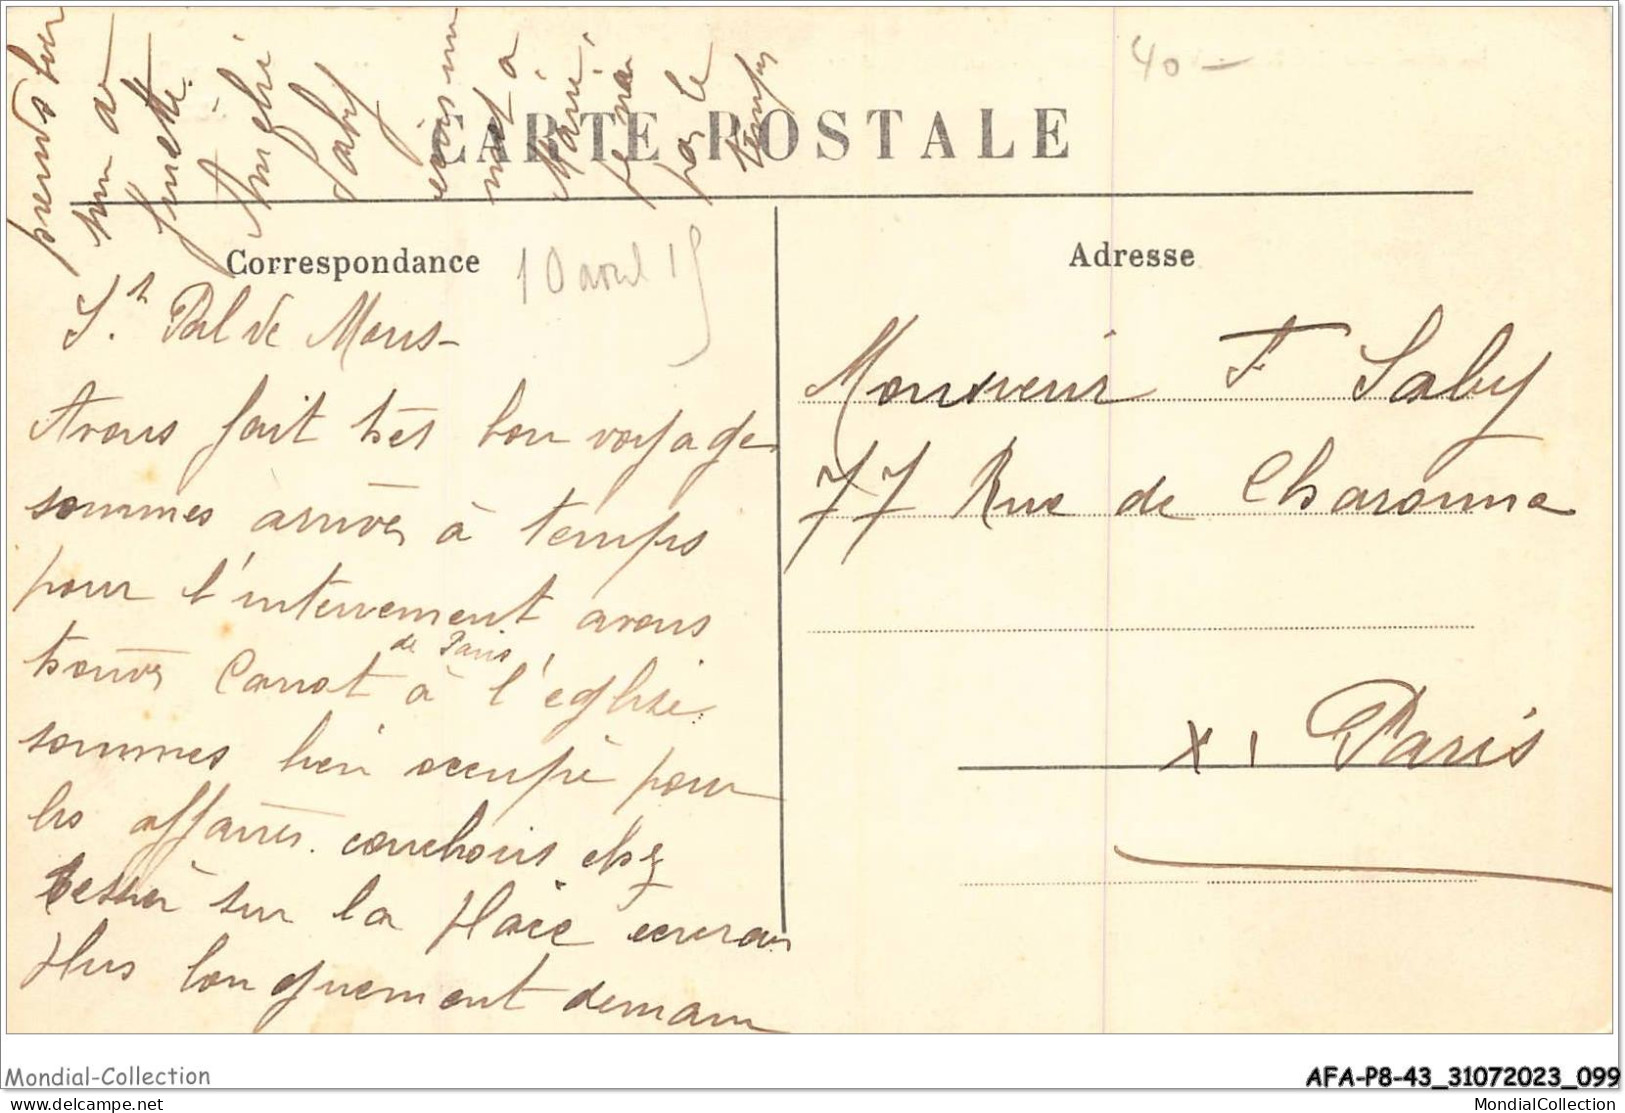 prends bien
Juliette.
Amélie
Saby
mot a
Marie
par le
temps
40 -
CARTE POSTALE
Correspondance
10 avril 15
Adresse
St. Pal de Mons-
Avons fait très bon voyage
sommes arrivés à temps
pour l'interrement avons
de Paris
trouvé Carrot à l'église
sommes bien occupé pour
les affaires. couchons chez
Tessier sur la Place ecrirons
plus longuement demain
Monsieur F. Saby
77 Rue de Charonne
XI Paris
Mondial-Collection
AFA-P8-43_31072023_099
delcampe.net
MondialCollection